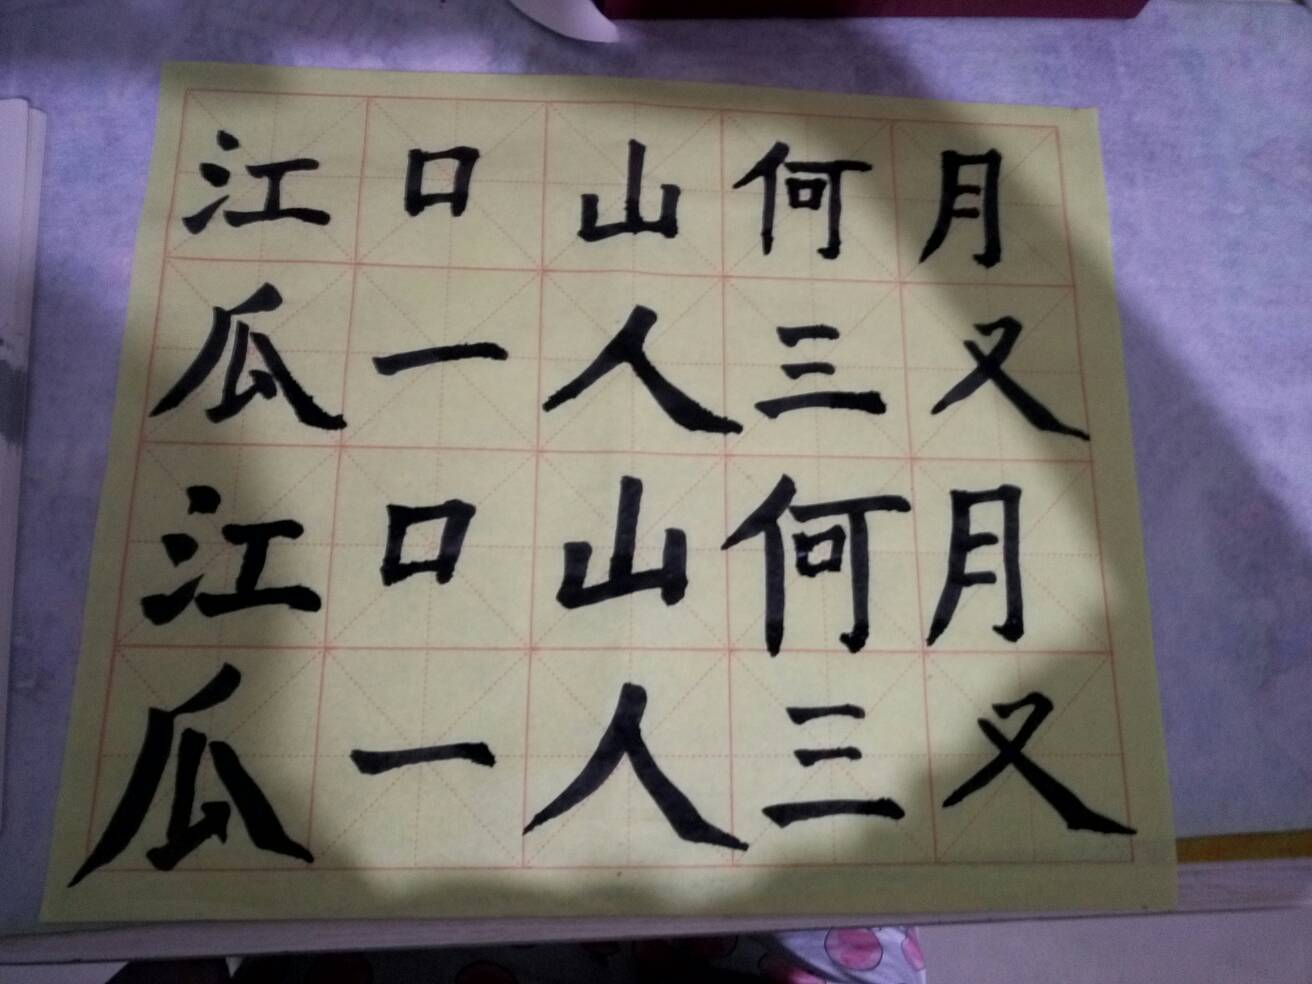 江口山何月
瓜一人三又
江口山何月
瓜一人三又